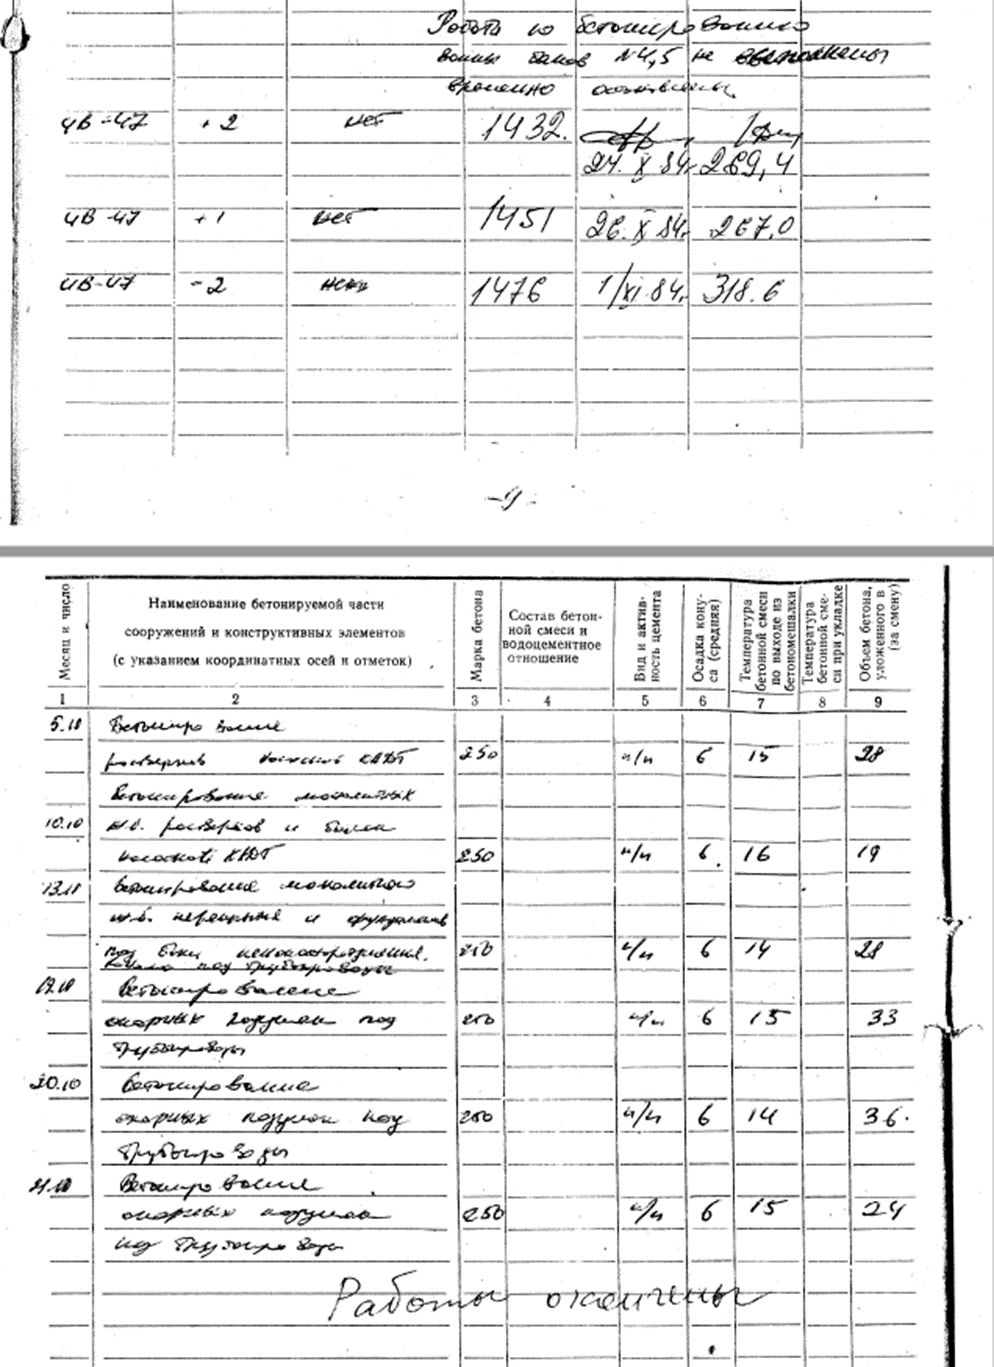 Работа по бетонированию
ванны баков №4,5 не выполнены
временно оставлены
ИВ-47 +2 нет 1432.
24.X 84г 269,4
ИВ-47 +1 нет 1451 26.X 84г. 267.0
ИВ-47 -2 1476 1/XI 84г. 318.6
Месяц и число
Наименование бетонируемой части
сооружений и конструктивных элементов
(с указанием координатных осей и отметок)
Марка бетона
Состав бетон-
ной смеси и
водоцементное
отношение
Вид и актив-
ность цемента
Осадка кону-
са (средняя)
Температура
бетонной смеси
по выходе из
бетономешалки
Температура
бетонной сме-
си при укладке
Объем бетона,
уложенного в
(за смену)
1 2 3 4 5 6 7 8 9
5.10 Бетонирование
250 н/н 6 15 28
Бетонирование монолитных
10.10 ж.б. ростверков и
250 н/н 6. 16 19
13.10 Бетонирование монолитного
ж.б. перекрытия и фундаментов
под баки 250 н/н 6 14 28
под трубопроводы
17.10 Бетонирование
опорных подушек под 250 н/н 6 15 33
трубопроводы
20.10 Бетонирование
опорных подушек под 250 н/н 6 14 36.
трубопроводы
Бетонирование
опорных подушек 250 н/н 6 15 24
под трубопроводы
Работы окончены